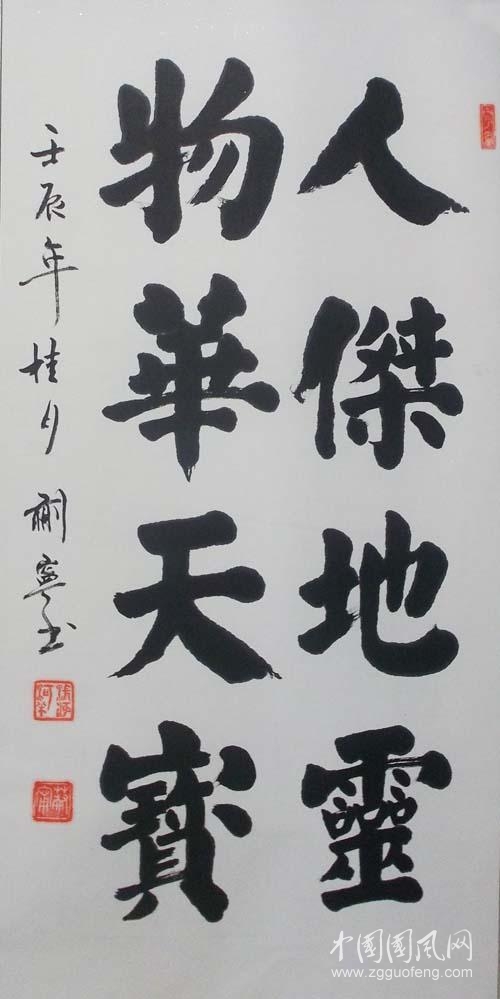 人傑地靈
物華天寳
壬辰年桂月
中国國风网
www.zgguofeng.com